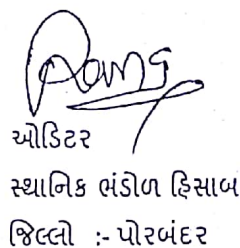 ઓડિટર
સ્થાનિક ભંડોળ હિસાબ
જિલ્લો :- પોરબંદર